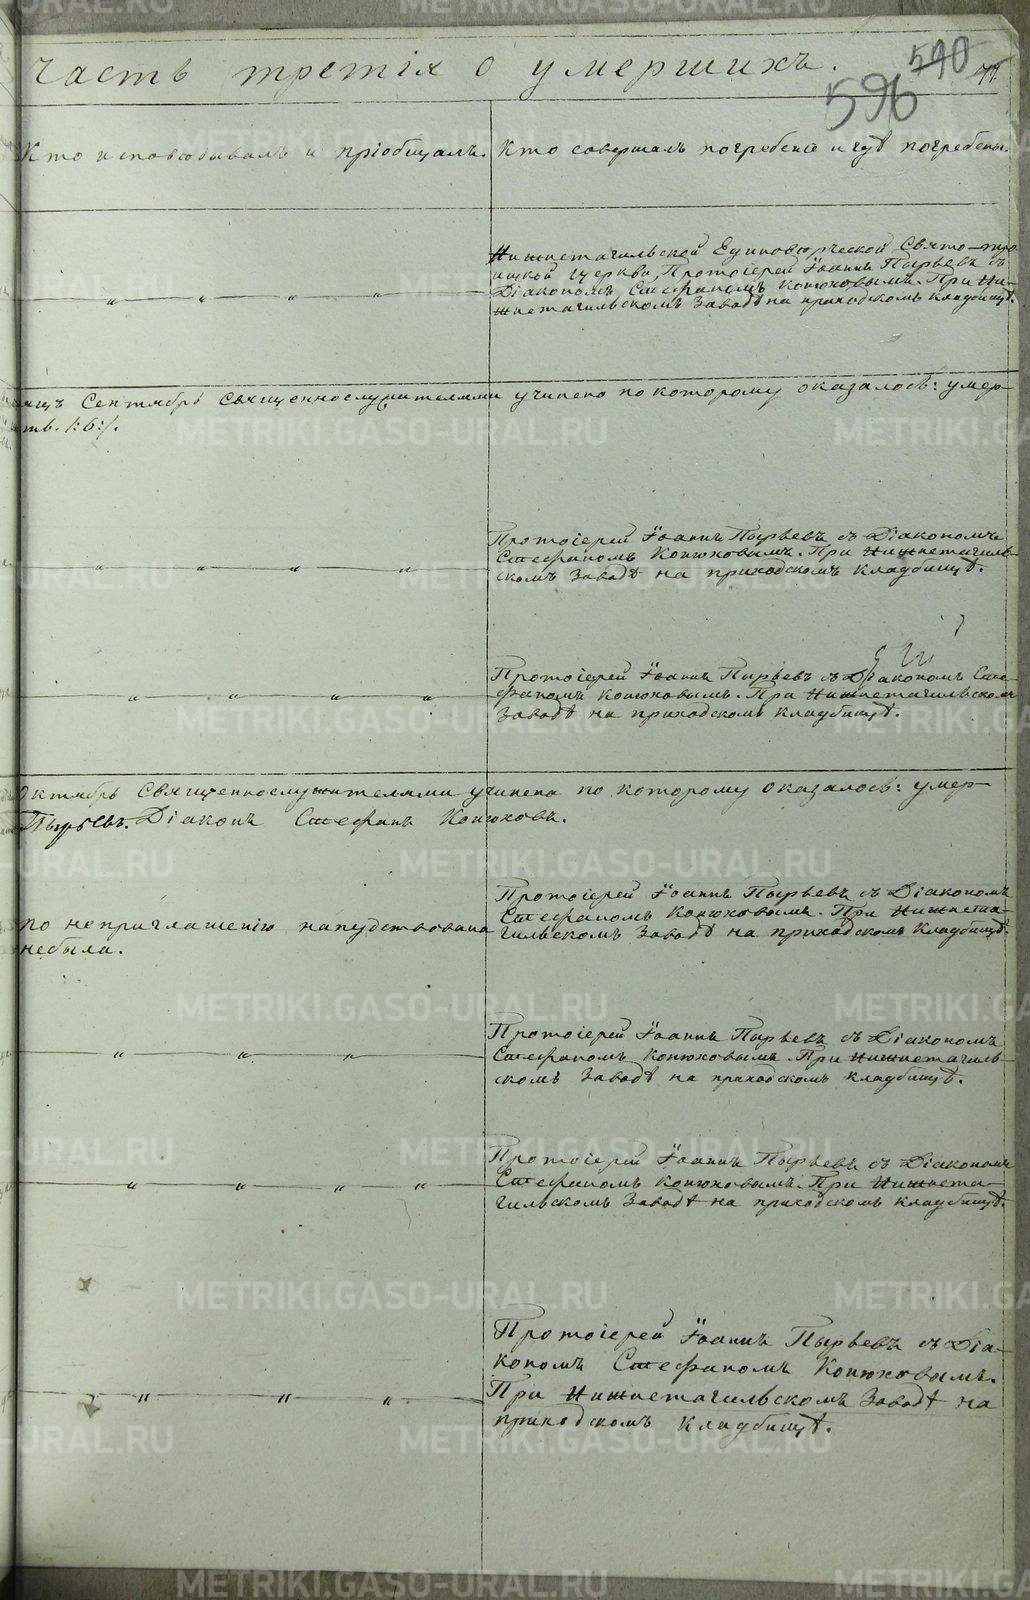 часть третія о умершихъ.
590
596
77.
Кто исповѣдывалъ и пріобщалъ.
Кто совершалъ погребеніе и гдѣ погребены.
Нижнетагильской Единовѣрческой Свято-тро-
ицкой церкви, Протоіерей Іоаннъ Пырьевъ съ
Діакономъ Стефаномъ Конюховымъ. При Ни-
жнетагильскомъ Заводѣ на приходскомъ кладбищѣ.
Сентябрь Священнослужителями учинено по которому оказалось: умер-
ств. /:6:/.
Протоіерей Іоаннъ Пырьевъ съ Діакономъ
Стефаномъ Конюховымъ. При Нижнетагиль-
скомъ Заводѣ на приходскомъ кладбищѣ.
Протоіерей Іоаннъ Пырьевъ съ Діакономъ Сте-
фаномъ Конюховымъ. При Нижнетагильскомъ
Заводѣ на приходскомъ кладбищѣ.
Октябрь Священнослужителями учинено по которому оказалось: умер-
Пырьевъ. Діаконъ Стефанъ Конюховъ.
по неприглашенію напудствована
небыла.
Протоіерей Іоаннъ Пырьевъ съ Діакономъ
Стефаномъ Конюховымъ. При Нижнета-
гильскомъ Заводѣ на приходскомъ кладбищѣ.
Протоіерей Іоаннъ Пырьевъ съ Діакономъ
Стефаномъ Конюховымъ. При Нижнетагиль-
скомъ Заводѣ на приходскомъ кладбищѣ.
Протоіерей Іоаннъ Пырьевъ съ Діакономъ
Стефаномъ Конюховымъ. При Нижнета-
гильскомъ Заводѣ на приходскомъ кладбищѣ.
Протоіерей Іоаннъ Пырьевъ съ Діа-
кономъ Стефаномъ Конюховымъ.
При Нижнетагильскомъ Заводѣ на
приходскомъ кладбищѣ.
METRIKI.GASO-URAL.RU